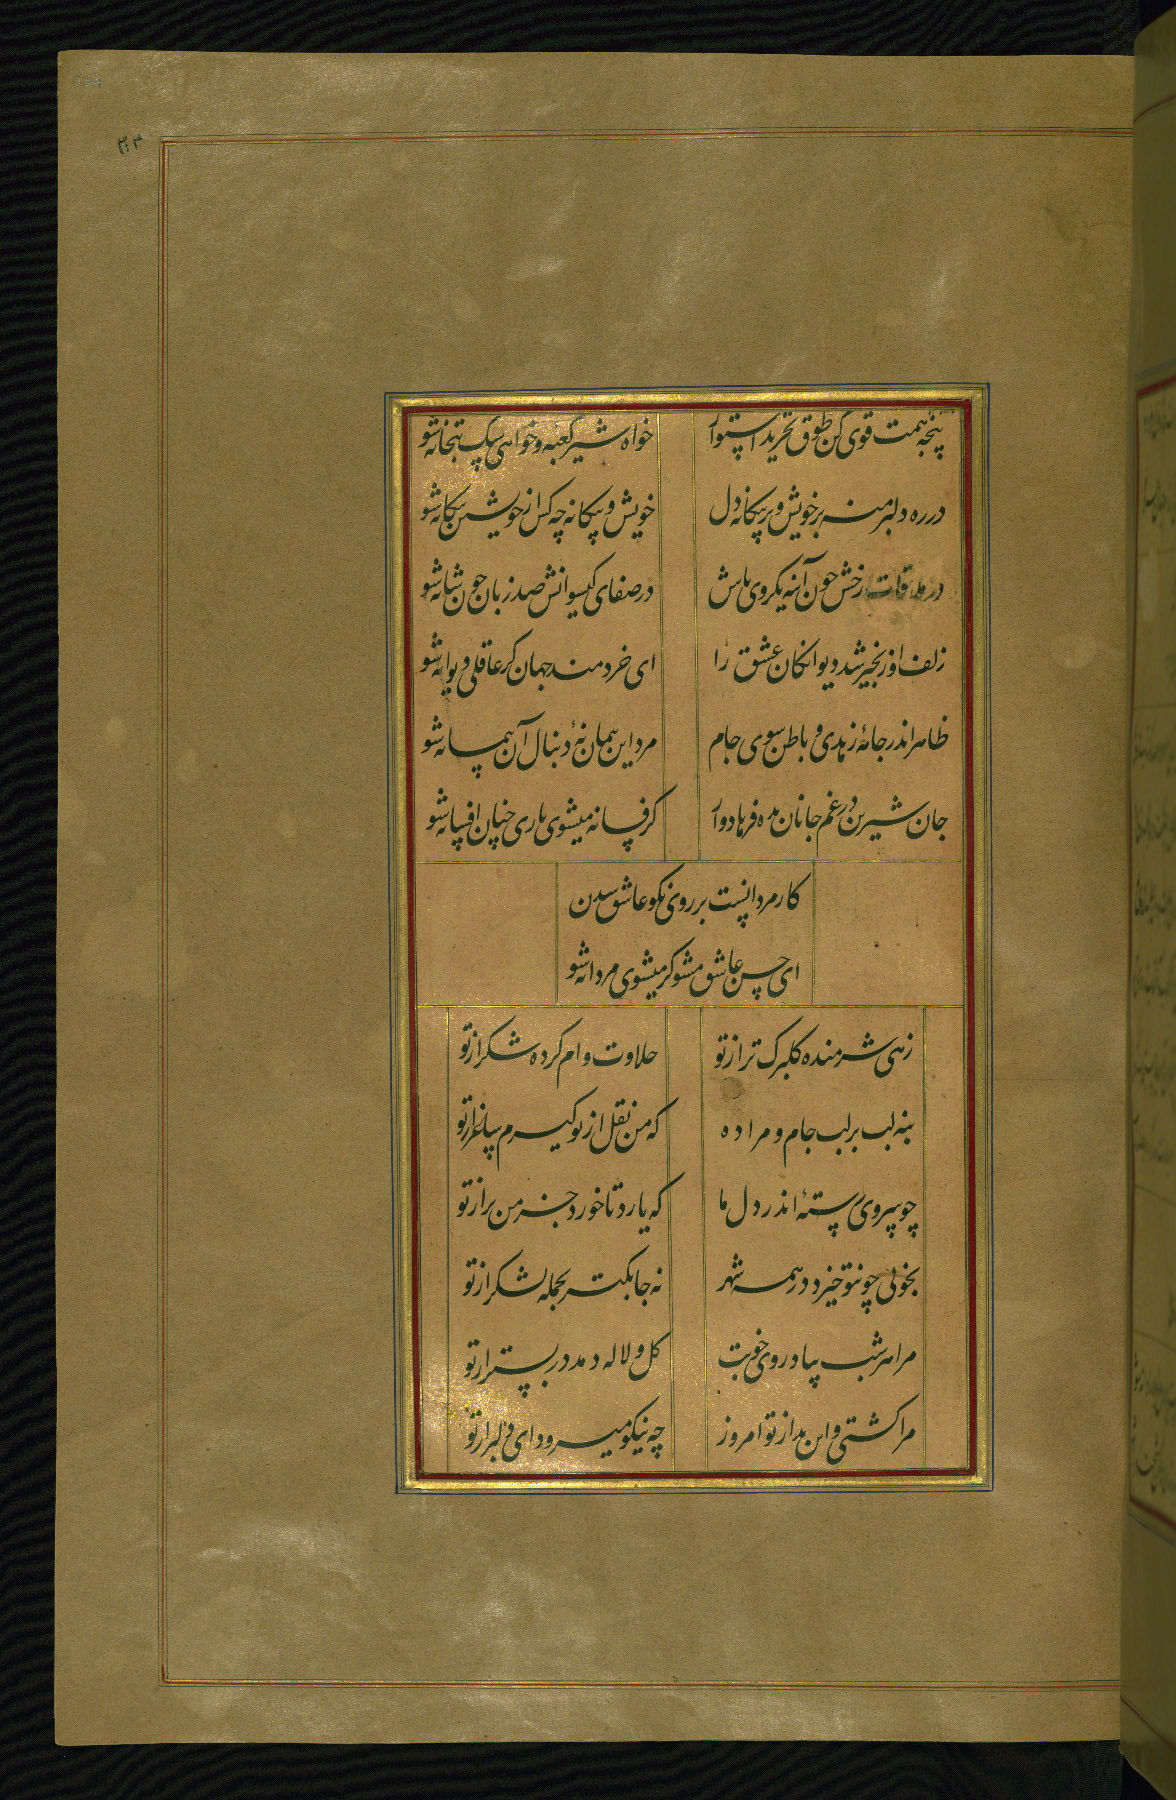 ۳۰۳
پنجه همت قوی کن طوق تجرید استوار
خواه شیر کعبه و خواهی سک بتخانه شو
در ره دلبر منه بر خویش و بر بیکانه دل
خویش و بیکانه چه کس از خویشتن بیکانه شو
در ملاقات رخش چون آنه یکروی باش
در صفای کیسوانش صد زبان چون شانه شو
زلف او زنجیر شد دیوانکان عشق را
ای خردمند جهان کر عاقلی دیوانه شو
ظاهر اندر جانۀ زهدی و باطن سوی جام
مرد این همان نۀ دنبال آن پیمانه شو
جان شیرین در غم جانان بده فرهادوار
کر فسانه میشوی باری چنان افسانه شو
کار مردانست بر روی نکو عاشق شدن
ای حسن عاشق مشو کر میشوی مردانه شو
زهی شرمنده کلبرک تر از تو
حلاوت وام کرده شکر از تو
بنه لب بر لب جام و مرا ده
که من نقل از تو کیرم ساغر از تو
چو سروی رستۀ اندر دل ما
که یارد تا خورد جز من بر از تو
بخوبی چونتو خیزد در همه شهر
نه جابکتر بجمله لشکر از تو
مرا هر شب بیاد روی خوبت
کل و لاله دمد در بستر از تو
مرا کشتی و این بد از تو امروز
چه نیکو میرود ای دلبر از تو